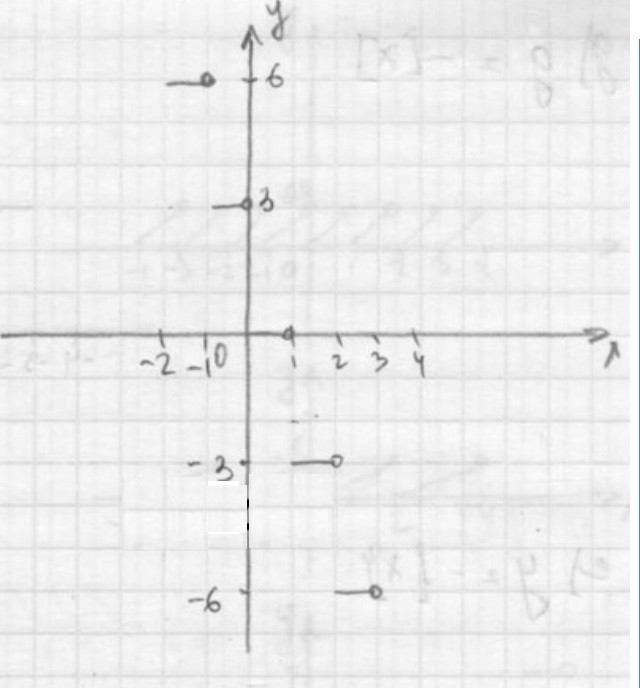 y
6
3
-2 -1 0 1 2 3 4
-3
-6